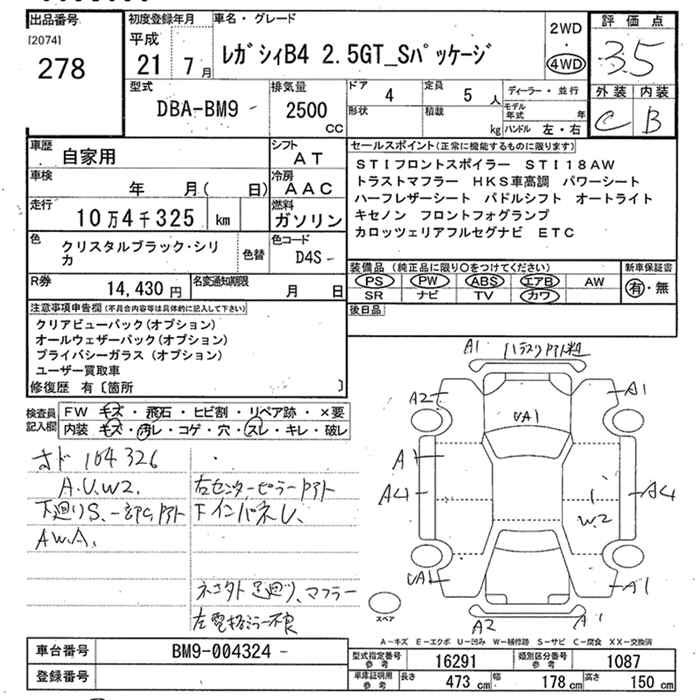 出品番号
[2074]
278
初度登録年月
平成
21 7月
車名・グレード
レガシィB4 2.5GT_Sパッケージ
2WD
・
4WD
評価点
3.5
外装 内装
C B
型式
DBA-BM9 -
排気量
2500
CC
ドア 4
定員 5 人
形状
積載 kg
ディーラー・並行
モデル年式 年
ハンドル 左・右
車歴
自家用
シフト
AT
車検
年 月( 日)
冷房
AAC
走行
10万4千325 km
燃料
ガソリン
色
クリスタルブラック・シリカ
色替
色コード
D4S -
R券
14,430円
名変通知期限
月 日
セールスポイント(正常に機能するものに限ります)
STIフロントスポイラー STI18AW
トラストマフラー HKS車高調 パワーシート
ハーフレザーシート パドルシフト オートライト
キセノン フロントフォグランプ
カロッツェリアフルセグナビ ETC
装備品(純正品に限り○をつけてください)
PS PW ABS エアB AW
SR ナビ TV カワ
新車保証書
有・無
後日品
注意事項申告欄(不具合内容等は具体的に記入して下さい)
クリアビューパック(オプション)
オールウェザーパック(オプション)
プライバシーガラス(オプション)
ユーザー買取車
修復歴 有〔箇所 〕
検査員記入欄
FW キズ・飛石・ヒビ割・リペア跡・×要
内装 キズ・汚レ・コゲ・穴・スレ・キレ・破レ
オド 104326
A.U.W2.
下廻りS、一部C、アト
AW A.
右センターピラーアト
下インパネU.
ネコタト足廻り、マフラー
左電格ミラー不良
A1
A2
A1
UA1
A1
A4
A4
W.2
UA1
A1
A2
A1
スペア
A-キズ E-エクボ U-凹み W-補修跡 S-サビ C-腐食 XX-交換済
車台番号
BM9-004324 -
登録番号
型式指定番号参考
16291
類別区分番号参考
1087
車庫証明用参考
長さ 473 cm
幅 178 cm
高さ 150 cm